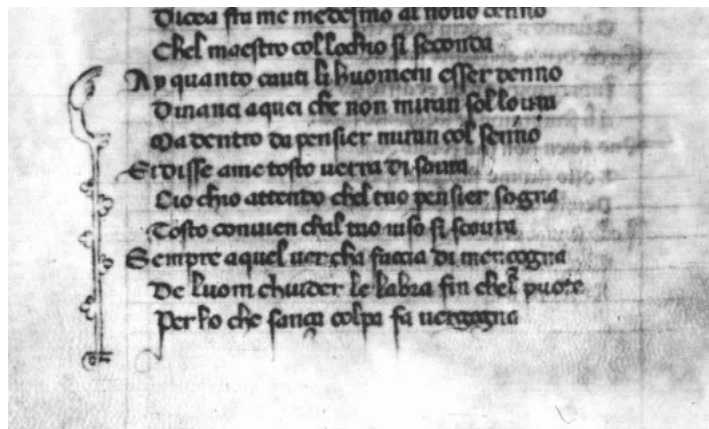 Dicea fra me medesmo al novo cenno
Chel maestro col lochio si seconda
Ay quanto cauti li huomeni esser denno
Dinanci aquei che non miran sol lovra
Ma dentro da pensier miran col senno
El disse ame tosto uerra di soura
Cio chio attendo chel tuo pensier sogna
Tosto convien chal tuo uiso si scoura
Sempre aquel uer cha faccia di mencogna
De luom chiuder le labra fin chel puote
Per ho che sança colpa fa uergogna